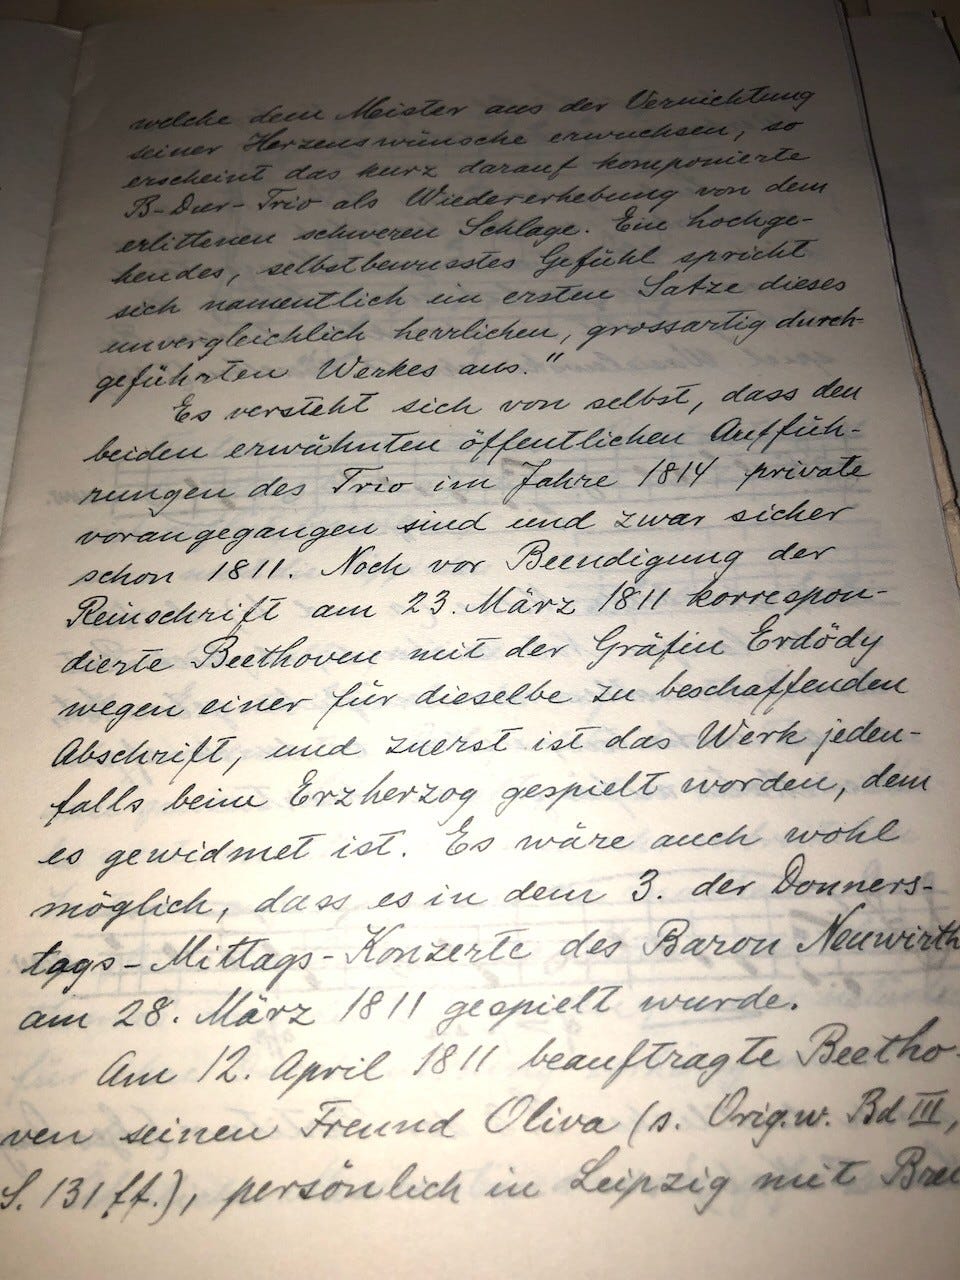 welche dem Meister aus der Vernichtung
seiner Herzenswünsche erwuchsen, so
erscheint das kurz darauf komponierte
B-Dur-Trio als Wiedererhebung von dem
erlittenen schweren Schlage. Ein hochge-
hendes, selbstbewusstes Gefühl spricht
sich namentlich im ersten Satze dieses
unvergleichlich herrlichen, grossartig durch-
geführten Werkes aus."
Es versteht sich von selbst, dass den
beiden erwähnten öffentlichen Auffüh-
rungen des Trio im Jahre 1814 private
vorangegangen sind und zwar sicher
schon 1811. Noch vor Beendigung der
Reinschrift am 23. März 1811 korrespon-
dierte Beethoven mit der Gräfin Erdödy
wegen einer für dieselbe zu beschaffenden
Abschrift, und zuerst ist das Werk jeden-
falls beim Erzherzog gespielt worden, dem
es gewidmet ist. Es wäre auch wohl
möglich, dass es in dem 3. der Donners-
tags-Mittags-Konzerte des Baron Neuwirth
am 28. März 1811 gespielt wurde.
Am 12. April 1811 beauftragte Beetho-
ven seinen Freund Oliva (s. Orig.w. Bd III,
S. 131 ff.), persönlich in Leipzig mit